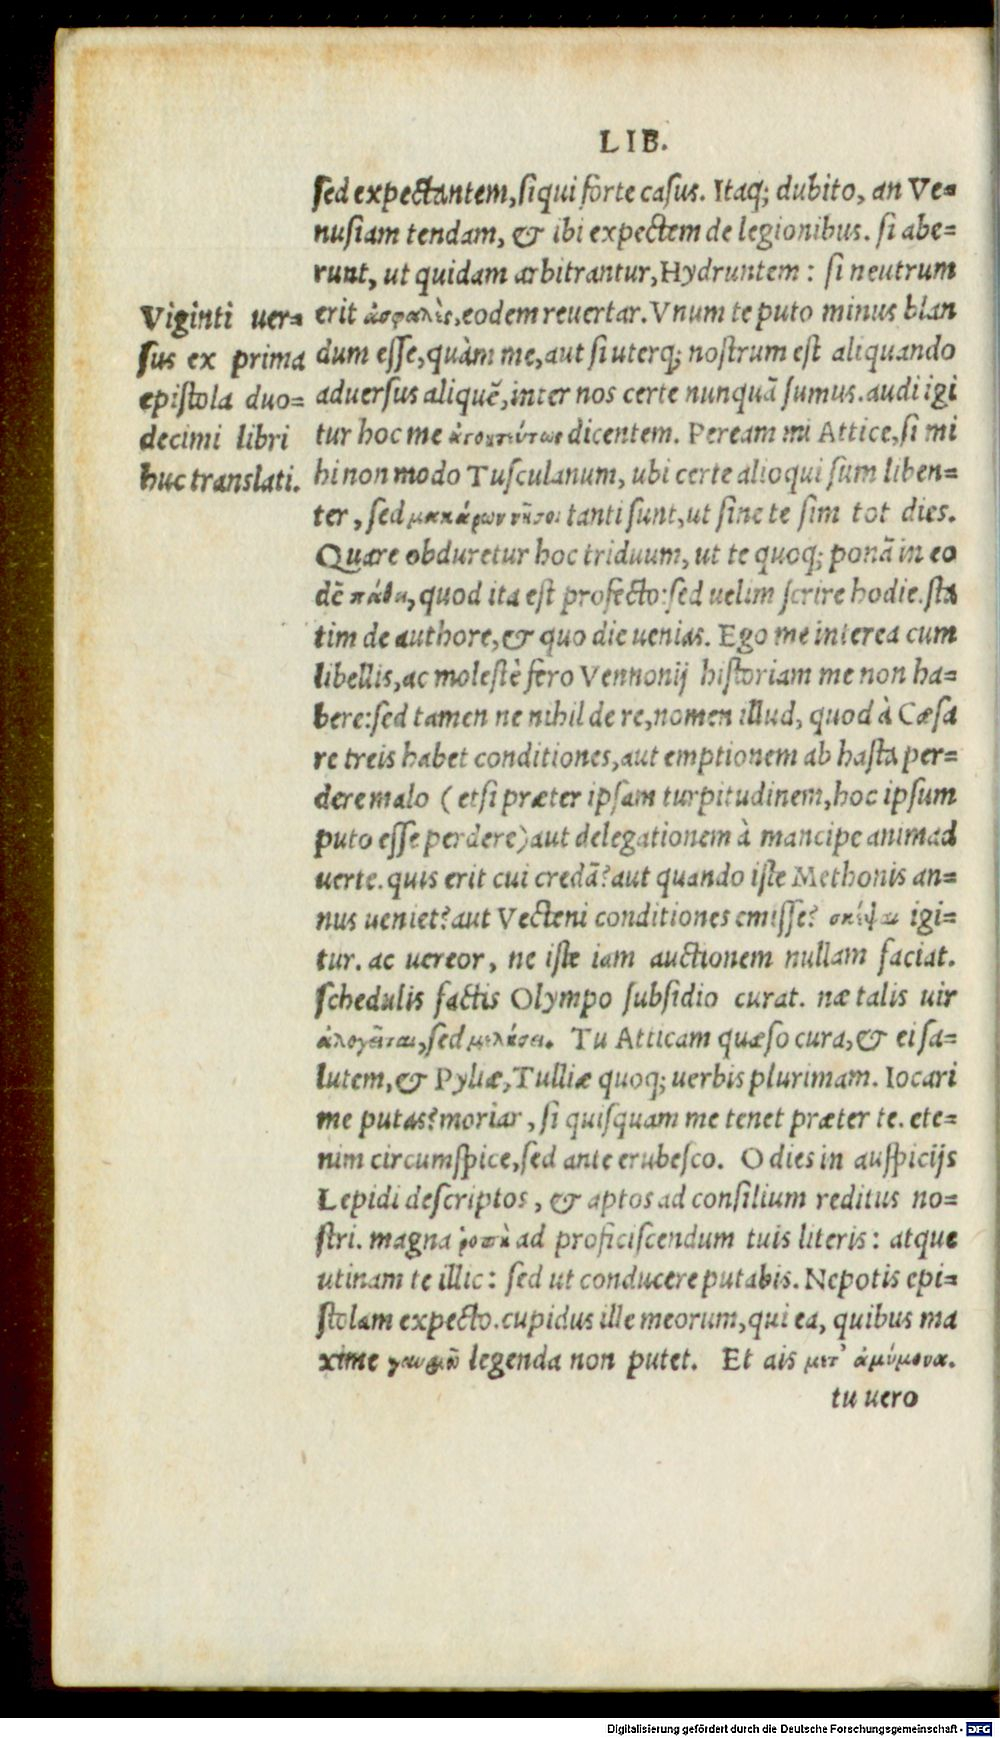 LIB.
sed expectantem, si qui forte casus. Itaq; dubito, an Ve=
nusiam tendam, & ibi expectem de legionibus. si abe=
runt, ut quidam arbitrantur, Hydruntem : si neutrum
erit ἀσφαλὲς, eodem reuertar. Vnum te puto minus blan
dum esse, quàm me, aut si uterq; nostrum est aliquando
aduersus aliquẽ, inter nos certe nunquã sumus. audi igi
tur hoc me dicentem. Peream mi Attice, si mi
hi non modo Tusculanum, ubi certe alioqui sum liben=
ter, sed μακάρων νῆσοι tanti sunt, ut sine te sim tot dies.
Quare obduretur hoc triduum, ut te quoq; ponã in eo
dẽ πάθει, quod ita est profecto: sed uelim scrire hodie. sta
tim de authore, & quo die uenias. Ego me interea cum
libellis, ac molestè fero Vennonij historiam me non ha=
bere: sed tamen ne nihil de re, nomen illud, quod à Cæsa
re treis habet conditiones, aut emptionem ab hasta per=
dere malo ( etsi præter ipsam turpitudinem, hoc ipsum
puto esse perdere) aut delegationem à mancipe animad
uerte. quis erit cui credã? aut quando iste Methonis an=
nus ueniet? aut Vecteni conditiones emisse? σκέψαι igi=
tur. ac uereor, ne iste iam auctionem nullam faciat.
schedulis factis Olympo subsidio curat. næ talis uir
sed μελήσει. Tu Atticam quæso cura, & ei sa=
lutem, & Pyliæ, Tulliæ quoq; uerbis plurimam. Iocari
me putas? moriar, si quisquam me tenet præter te. ete=
nim circumspice, sed ante erubesco. O dies in auspicijs
Lepidi descriptos, & aptos ad consilium reditus no=
stri. magna ῥοπὴ ad proficiscendum tuis literis : atque
utinam te illic : sed ut conducere putabis. Nepotis epi=
stolam expecto. cupidus ille meorum, qui ea, quibus ma
xime γαυριῶ legenda non putet. Et ais μετ' ἀμύμονα.
tu uero
Viginti uer=
sus ex prima
epistola duo=
decimi libri
huc translati.
Digitalisierung gefördert durch die Deutsche Forschungsgemeinschaft - DFG